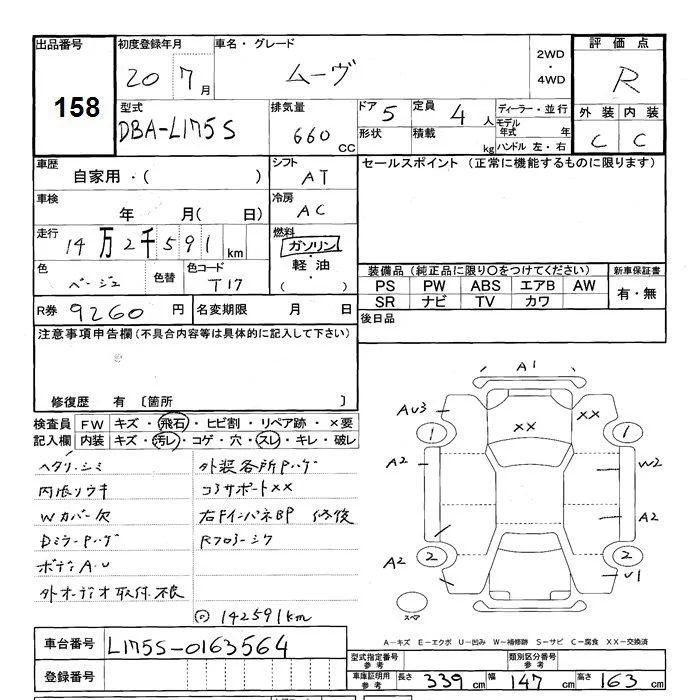 出品番号
158
初度登録年月
20 7月
車名・グレード
ムーヴ
2WD
・
4WD
評価点
R
外装 内装
C C
型式
DBA-L175S
排気量
660 CC
ドア 5
定員 4 人
形状
積載 kg
ディーラー・並行
モデル年式 年
ハンドル 左・右
車歴
自家用・( )
シフト
AT
セールスポイント (正常に機能するものに限ります)
車検
年 月( 日)
冷房
AC
走行
14万2千591km
燃料
ガソリン
・
軽油
( )
色
ベージュ
色替
色コード
T17
装備品(純正品に限り○をつけてください)
新車保証書
PS PW ABS エアB AW
SR ナビ TV カワ
有・無
R券 9260 円
名変期限 月 日
後日品
注意事項申告欄(不具合内容等は具体的に記入して下さい)
修復歴 有 〔箇所 〕
検査員 FW キズ・飛石・ヒビ割・リペア跡・×要
記入欄 内装 キズ・汚レ・コゲ・穴・スレ・キレ・破レ
ヘタリ・シミ
外装各所Pハゲ
内張リウキ
コアサポートXX
Wカバー欠
右FインパネBP 修後
DミラーPハゲ
ボディA・U
外オーディオ取付不良
◎142591km
A1
AU3
XX
XX
1
1
A2
W2
A2
A2
2
2
U1
スペア
A-キズ E-エクボ U-凹み W-補修跡 S-サビ C-腐食 XX-交換済
車台番号
L175S-0163564
登録番号
型式指定番号
参考
類別区分番号
参考
車庫証明用
参考
長さ 339 cm 幅 147 cm 高さ 163 cm